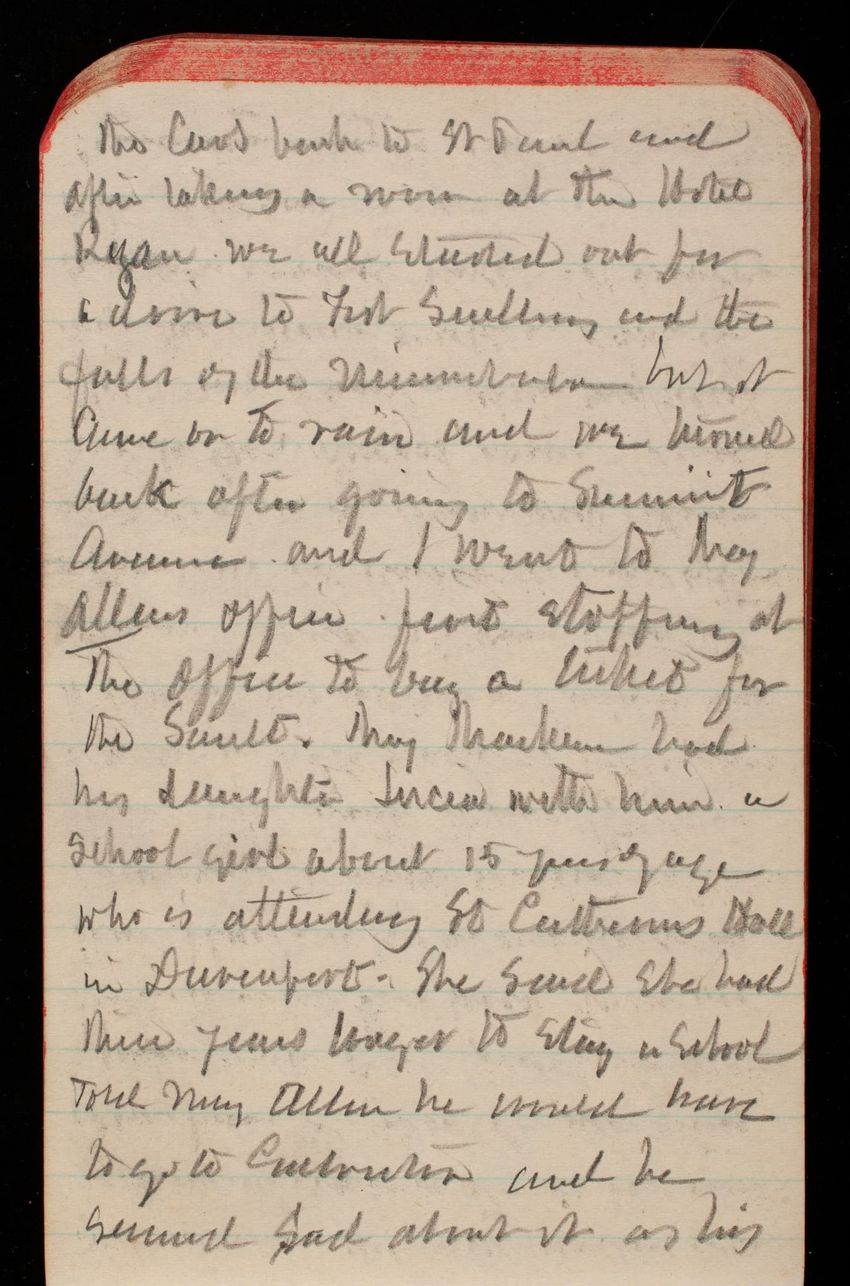 the Cars back to St Paul and
after taking a room at the Hotel
Ryan we all started out for
a drive to Fort Snelling and the
falls of the Minnehaha but it
Came on to rain and we turned
back after going to Summit
Avenue and I went to Maj
Allens office first stopping at
the office to buy a ticket for
the Sault. Maj had
his daughter with him a
School girl about 15 years of age
who is attending St Catherines Hall
in Davenport. She said she had
three years longer to stay a School
Told Maj Allen he would have
to go to and he
seemed sad about it as his